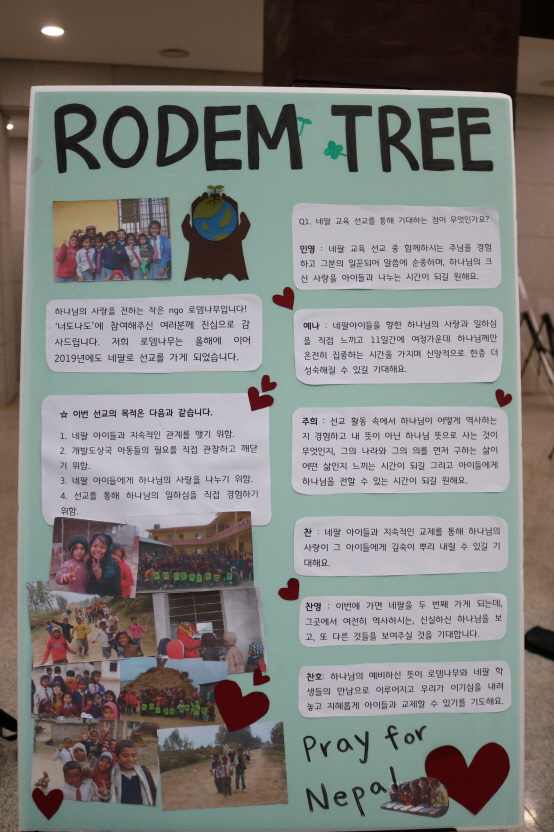 RODEM TREE
하나님의 사랑을 전하는 작은 ngo 로뎀나무입니다!
'너도나도'에 참여해주신 여러분께 진심으로 감
사드립니다. 저희 로뎀나무는 올해에 이어
2019년에도 네팔로 선교를 가게 되었습니다.
☆ 이번 선교의 목적은 다음과 같습니다.
1. 네팔 아이들과 지속적인 관계를 맺기 위함.
2. 개발도상국 아동들의 필요를 직접 관찰하고 깨닫
기 위함.
3. 네팔 아이들에게 하나님의 사랑을 나누기 위함.
4. 선교를 통해 하나님의 일하심을 직접 경험하기
위함.
Q1. 네팔 교육 선교를 통해 기대하는 점이 무엇인가요?
민영 : 네팔 교육 선교 중 함께하시는 주님을 경험
하고 그분의 일꾼되어 말씀에 순종하며, 하나님의 크
신 사랑을 아이들과 나누는 시간이 되길 원해요.
예나 : 네팔아이들을 향한 하나님의 사랑과 일하심
을 직접 느끼고 11일간에 여정가운데 하나님께만
온전히 집중하는 시간을 가지며 신앙적으로 한층 더
성숙해질 수 있길 기대해요.
주희 : 선교 활동 속에서 하나님이 어떻게 역사하는
지 경험하고 내 뜻이 아닌 하나님 뜻으로 사는 것이
무엇인지, 그의 나라와 그의 의를 먼저 구하는 삶이
어떤 삶인지 느끼는 시간이 되길 그리고 아이들에게
하나님을 전할 수 있는 시간이 되길 원해요.
찬 : 네팔 아이들과 지속적인 교제를 통해 하나님의
사랑이 그 아이들에게 깊숙이 뿌리 내릴 수 있길 기
대해요.
찬영 : 이번에 가면 네팔을 두 번째 가게 되는데,
그곳에서 여전히 역사하시는, 신실하신 하나님을 보
고, 또 다른 것들을 보여주실 것을 기대합니다.
찬호: 하나님의 예비하신 뜻이 로뎀나무와 네팔 학
생들의 만남으로 이루어지고 우리가 이기심을 내려
놓고 지혜롭게 아이들과 교제할 수 있기를 기도해요.
Pray for
Nepal